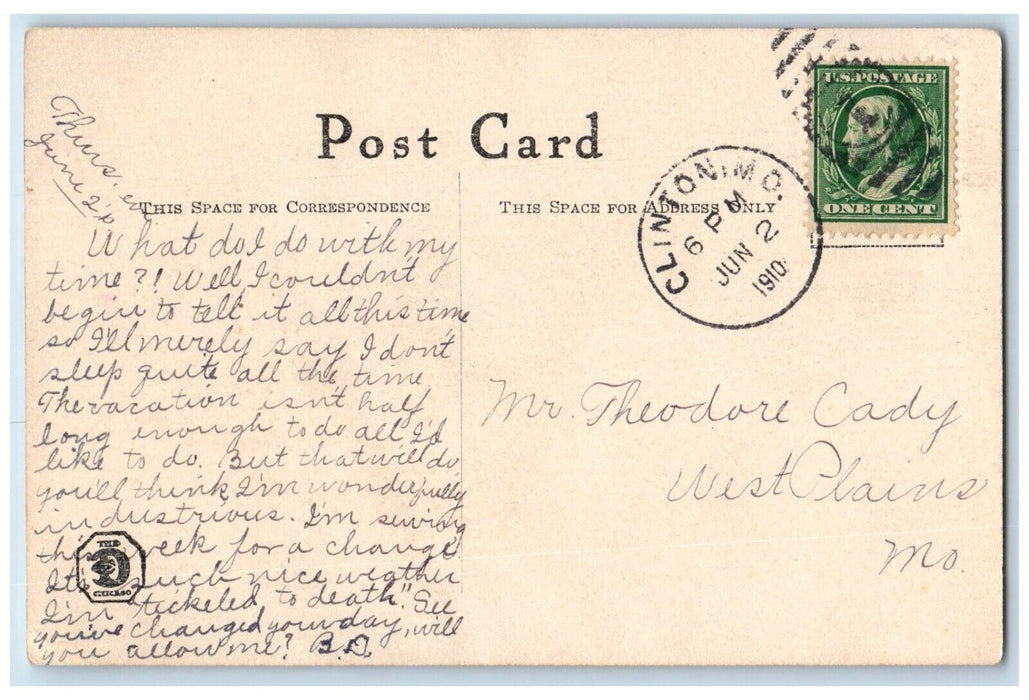 Post Card
THIS SPACE FOR CORRESPONDENCE
THIS SPACE FOR ADDRESS ONLY
U.S. POSTAGE
ONE CENT
CLINTON, MO.
6 PM
JUN 2
1910
Thurs. eve
June 2
What do I do with my
time?! Well, I couldn't
begin to tell it all this time
so I'll merely say I don't
sleep quite all the time.
The vacation isn't half
long enough to do all I'd
like to do. But that will do
you'll think I'm wonderfully
industrious. I'm sewing
this week for a change.
It's such nice weather
I'm "tickeled to death". See
you've changed your day, will
you allow me? B.D.
Mr. Theodore Cady
West Plains
Mo.
THE
CHICAGO